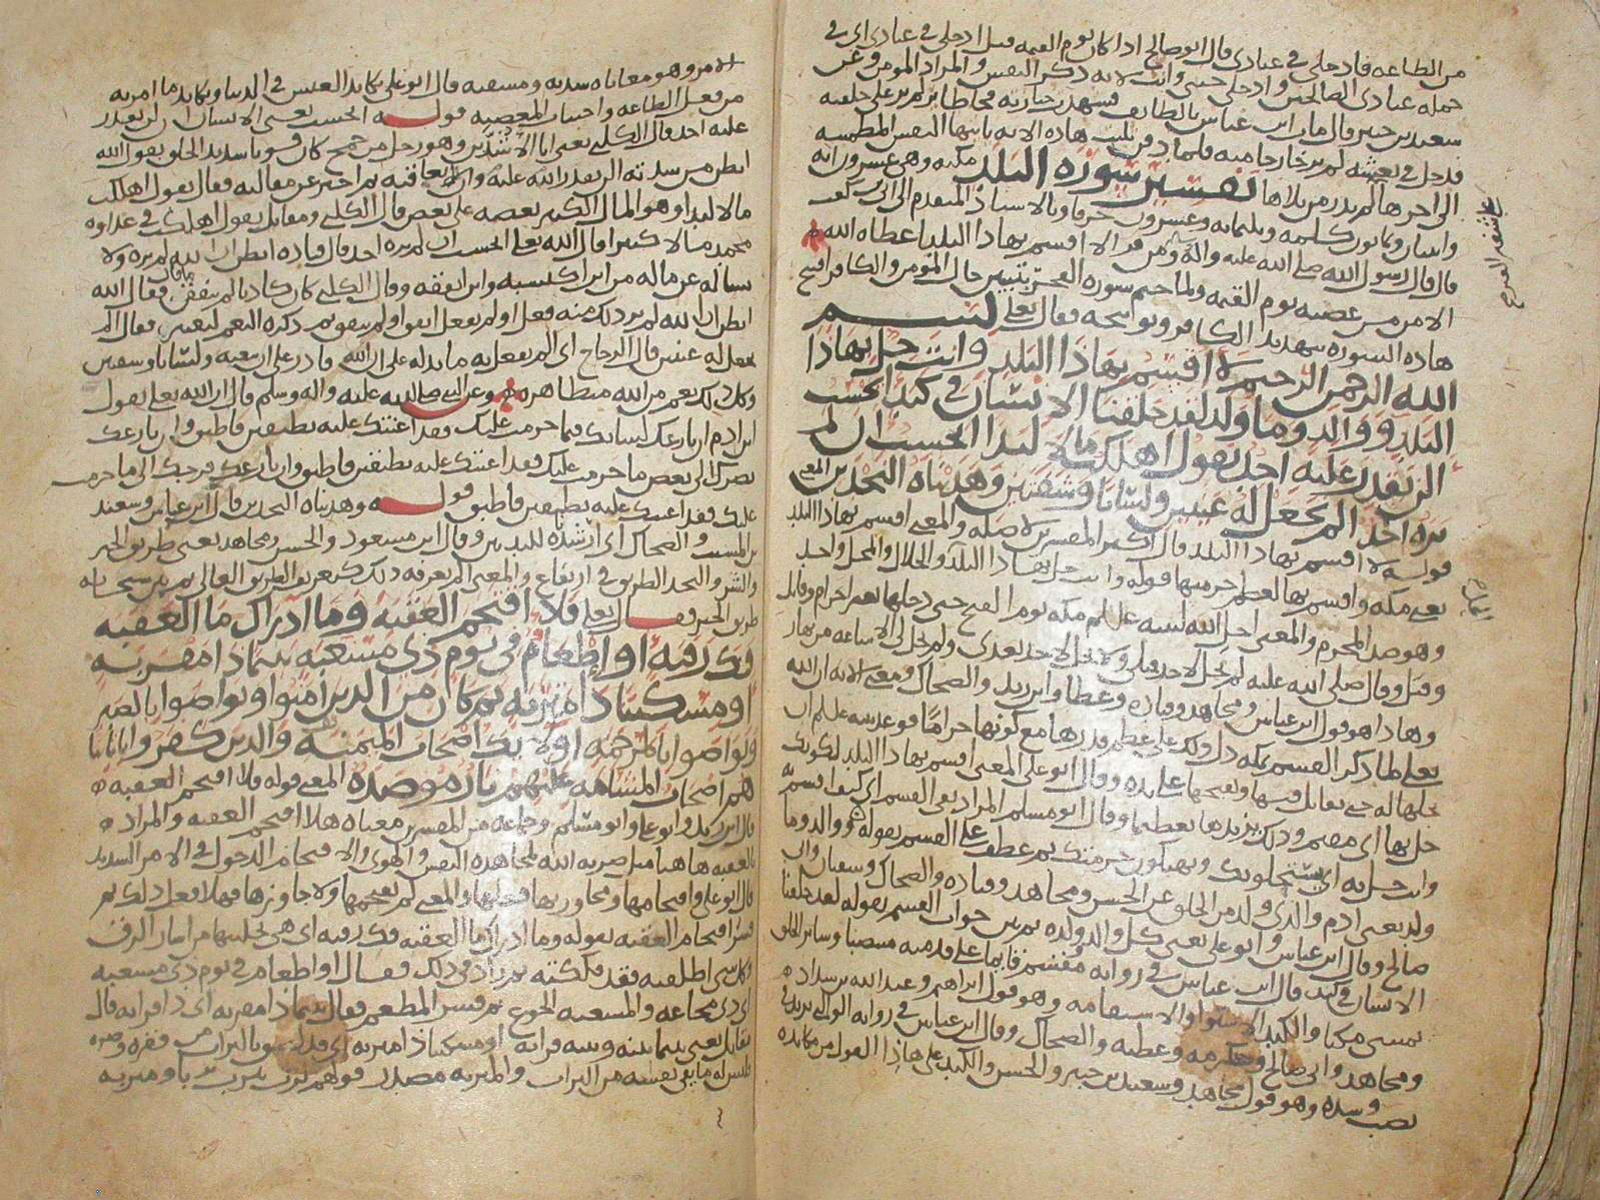 من الطاعه فادخلي في عبادي قال ابو صالح اذا كان يوم القيمه قيل ادخلي في عبادي اي في
جمله عبادي الصالحين وادخلي جنتي وانث لانه ذكر النفس والمراد المومن وعن
سعيد بن جبير قال مات ابن عباس بالطائف فشهدت جنازته فجا طائر لم ير على خلقته
فدخل في نعشه لم ير خارجا منه فلما دفن تليت هاذه الايه يا ايتها النفس المطمئنه
الى اخرها لم يدر من تلاها تفسير سوره البلد مكيه وهي عشرون ايه
واثنان وثمانون كلمه وثلثمائه وعشرون حرفا وبالاسناذ المتقدم الى ابي بن كعب
قال قال رسول الله صلى الله عليه واله ومن قرا لا اقسم بهاذا البلد اعطاه الله
الامن من غضبه يوم القيمه ولما ختم سوره الفجر بتبيين حال المومن والكافر افتتح
هاذه السوره بتهديد الكافر وتوابيخه فقال تعلى بسم
الله الرحمن الرحيم لا اقسم بهاذا البلد وانت حل بهاذا
البلد ووالد وما ولد لقد خلقنا الانسان في كبد ايحسب
ان لن يقدر عليه احد يقول اهلكت مالا لبدا ايحسب ان لم
يره احد الم نجعل له عينين ولسانا وشفتين وهديناه النجدين المعنى
قوله لا اقسم بهاذا البلد قال اكثر المفسرين لا صله والمعنى اقسم بهاذا البلد
يعني مكه واقسم بها لعظم حرمتها قوله وانت حل بهاذا البلد والحلال والمحل واحد
وهو ضد المحرم والمعنى احل الله لنبيه علم مكه يوم الفتح حتى دخلها بغير احرام وقاتل
وقتل وقال صلى الله عليه لم يحل لاحد قبلي ولا يحل لاحد بعدي ولم يحل لي الا ساعه من نهار
وهاذا هو قول ابن عباس ومجاهد وقتاده وعطا وابن زيد والضحاك ومعنى الايه ان الله
تعلى لما ذكر القسم بمكه دل ذلك على عظم قدرها مع كونها حراما فوعد نبيه علم ان
يحلها له حتى يقاتل فيها ويفتحها على يده وقال ابو علي المعنى اقسم بهاذا البلد لكونك
حل بها اي مقيم وذلك يزيدها تعظيما وقال ابو مسلم المراد نفي القسم اي كيف اقسم
وانت حل به اي يستحلونك ويهتكون حرمتك ثم عطف على القسم بقوله ووالد وما
ولد يعني ادم والذي ولد من الخلق عن الحسن ومجاهد وقتاده والضحاك وسفيان وابي
صالح وقال ابن عباس وابو علي يعني كل والد وولده ثم بين جواب القسم بقوله لقد خلقنا
الانسان في كبد قال ابن عباس في روايه ومقسم قائما على قدميه منتصبا وسائر الخلق
يمشي مكبا والكبد الاستوا والاستقامه وهو قول ابراهيم وعبد الله بن شداد
ومجاهد وابي صالح وعكرمه وعطيه والضحاك وقال ابن عباس في روايه الوالبي يريد في
نصب وشده وهو قول مجاهد وسعيد بن جبير والحسن والكبد على هاذا القول من مكابده
الامر وهو معاناه شدته ومشقته قال ابو علي يكابد العيش في الدنيا ويكابد ما امر به
من فعل الطاعه واجتناب المعصيه قوله ايحسب يعني الانسان ان لن يقدر
عليه احد قال الكلبي يعني ابا الاشدين وهو رجل من جمح كان قويا شديد الخلق يقول الله
ايظن من شدته ان لن يقدر الله عليه وان يعاقبه ثم اخبر عن مقالته فقال يقول اهلكت
مالا لبدا وهو المال الكثير بعضه على بعض قال الكلبي ومقاتل يقول اهلكت في عداوه
محمد مالا كثيرا قال الله تعلى ايحسب ان لم يره احد قال قتاده ايظن ان الله لم يره ولا
يساله عن ماله من اين اكتسبه واين انفقه وقال الكلبي كان كاذبا لم ينفق ما قال فقال الله
ايظن ان الله لم ير ذلك منه فعل او لم يفعل انفق او لم ينفق ثم ذكره النعم ليعتبر فقال الم
نجعل له عينين قال الزجاج اي الم نفعل به ما يدله على ان الله قادر على ان يبعثه ولسانا وشفتين
وكل ذلك نعم من الله متظاهره وعن النبي صلى الله عليه واله وسلم قال ان الله تعلى يقول
ابن ادم ان نازعك لسانك فيما حرمت عليك فقد اعنتك عليه بطبقين فاطبق وان نازعك
بصرك الى بعض ما حرمت عليك فقد اعنتك عليه بطبقين فاطبق وان نازعك فرجك الى ما حرمت
عليك فقد اعنتك عليه بطبقين فاطبق قوله وهديناه النجدين قال ابن عباس وسعيد
بن المسيب والضحاك اي ارشدناه للثديين وقال ابن مسعود والحسن ومجاهد يعني طريق الخير
والشر والنجد الطريق في ارتفاع والمعنى الم نعرفه ذلك كتعريف الطريق العالي ثم بين سبحانه
طريق الخير فقال تعلى فلا اقتحم العقبه وما ادراك ما العقبه
فك رقبه او اطعام في يوم ذي مسغبه يتيما ذا مقربه
او مسكينا ذا متربه ثم كان من الذين امنوا وتواصوا بالصبر
وتواصوا بالمرحمه اولائك اصحاب الميمنه والذين كفروا باياتنا
هم اصحاب المشامه عليهم نار موصده المعنى قوله فلا اقتحم العقبه
قال ابن زيد وابو علي وابو مسلم وجماعه من المفسرين معناه هلا اقتحم العقبه والمراد
بالعقبه هاهنا مثل ضربه الله لمجاهده النفس والهوى والاقتحام الدخول في الامر الشديد
قال ابو علي واقتحامها ومجاوزتها فعلها والمعنى لم يقتحمها ولا جاوزها فهلا فعل ذلك ثم
فسر اقتحام العقبه بقوله وما ادراك ما العقبه فك رقبه اي هي تخليتها من اسار الرق
وكل شي اطلقته فقد فككته ثم زاد في ذلك فقال او اطعام في يوم ذي مسغبه
اي ذي مجاعه والمسغبه الجوع ثم فسر المطعم فقال يتيما ذا مقربه اي ذا قرابه قال
مقاتل يعني يتيما بينه وبينه قرابه او مسكينا ذا متربه اي قد لصق بالتراب من فقره وضره
فليس له ما يقي نفسه من التراب والمتربه مصدر قولهم ترب يترب تربا ومتربه